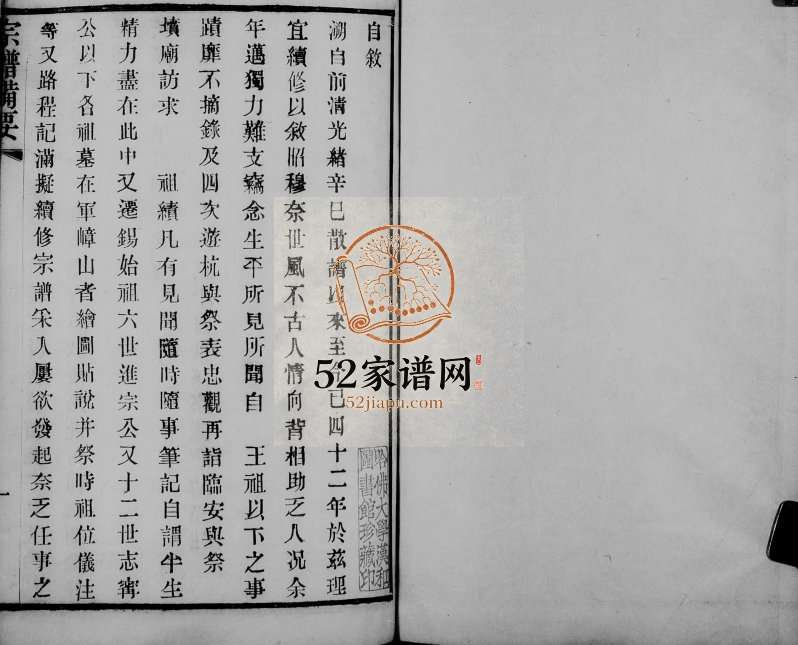 自敘
溯自前清光緒辛巳散譜以來至今已四十二年於茲理
宜續修以敘昭穆奈世風不古人情向背相助乏人况余
年邁獨力難支竊念生平所見所聞自 王祖以下之事
蹟靡不摘錄及四次遊杭與祭表忠觀再詣臨安與祭
墳廟訪求 祖績凡有見聞隨時隨事筆記自謂半生
精力盡在此中又遷錫始祖六世進宗公又十二世志寗
公以下各祖墓在軍嶂山者繪圖貼說并祭時祖位儀注
等又路程記滿擬續修宗譜采入屢欲發起奈乏任事之
宗譜備要
一
哈佛大學漢和
圖書館珍藏印
52家谱网
52jiapu.com